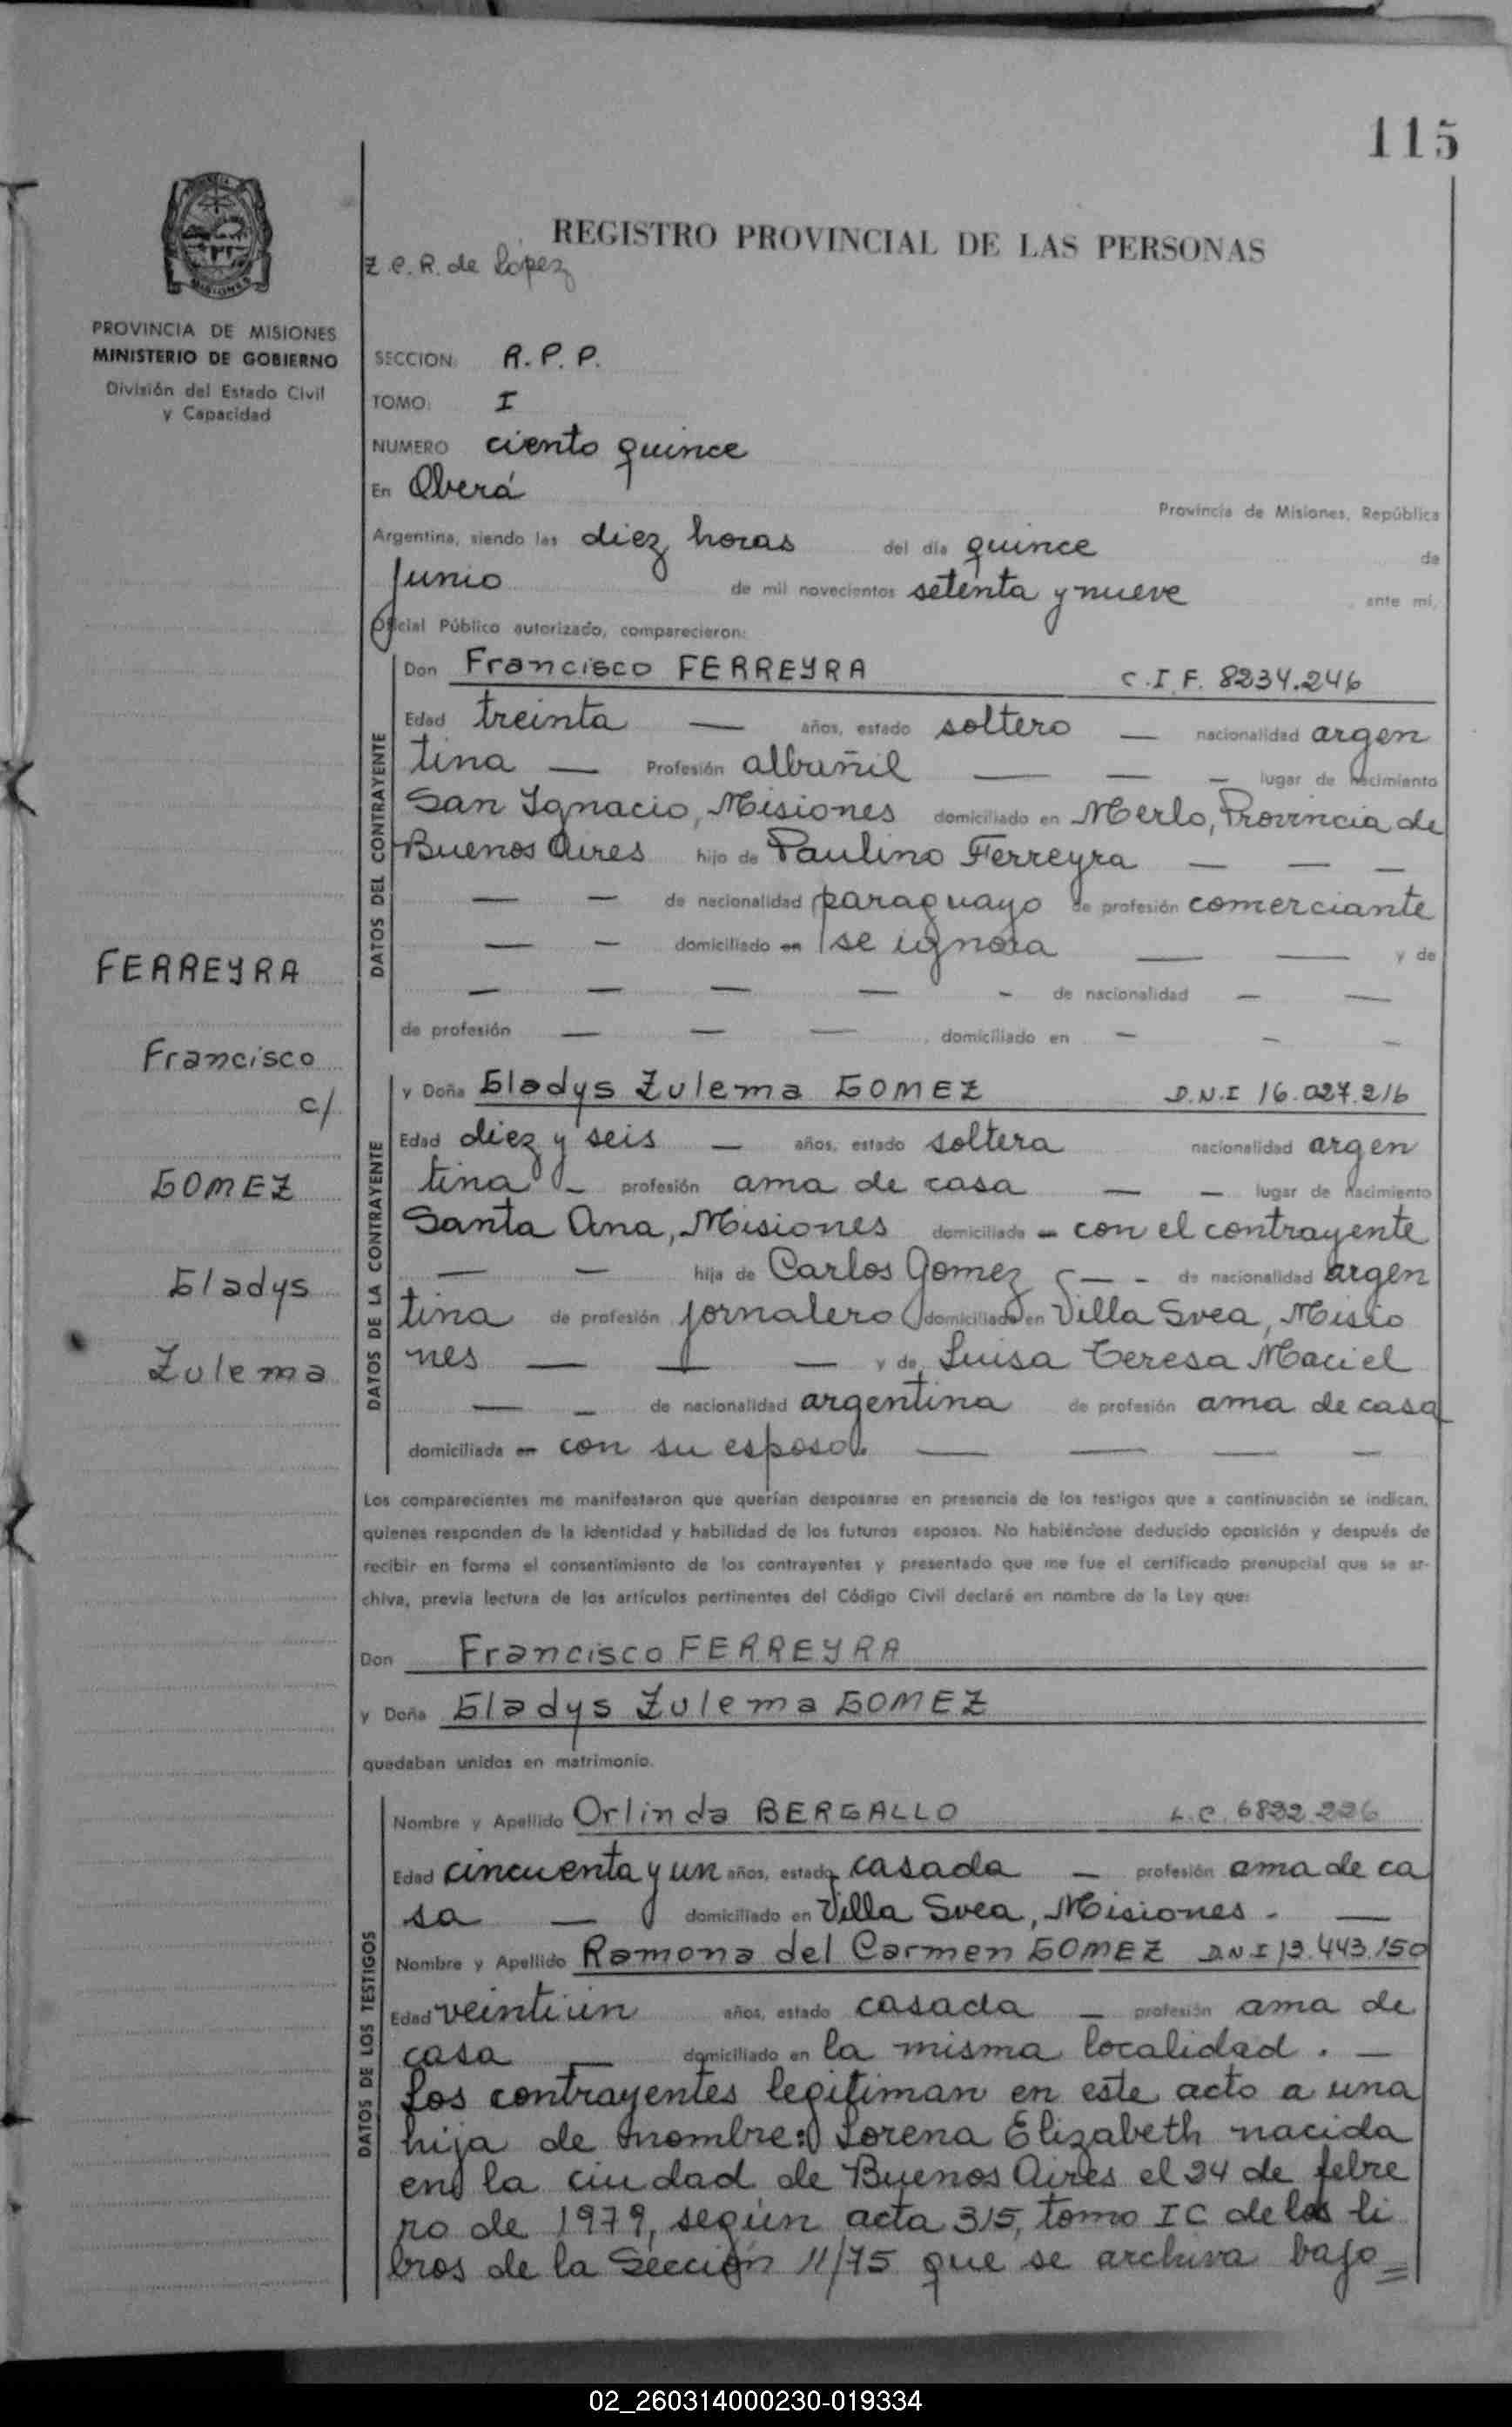 115
REGISTRO PROVINCIAL DE LAS PERSONAS
Z e. R. de López
PROVINCIA DE MISIONES
MINISTERIO DE GOBIERNO
División del Estado Civil
y Capacidad
SECCION: R. P. P.
TOMO: I
NUMERO ciento quince
En Oberá Provincia de Misiones, República
Argentina, siendo las diez horas del día quince de
Junio de mil novecientos setenta y nueve ante mí,
Oficial Público autorizado, comparecieron:
DATOS DEL CONTRAYENTE
Don Francisco FERREYRA C.I.F. 8234.246
Edad treinta — años, estado soltero — nacionalidad argen
tina — Profesión albañil — — — lugar de nacimiento
San Ignacio, Misiones domiciliado en Merlo, Provincia de
Buenos Aires hijo de Paulino Ferreyra — — —
— — de nacionalidad paraguayo de profesión comerciante
— — domiciliado en se ignora — — y de
— — — — - de nacionalidad — —
de profesión — — — , domiciliado en — — —
FERREYRA
Francisco
c/
GOMEZ
Gladys
Zulema
DATOS DE LA CONTRAYENTE
y Doña Gladys Zulema GOMEZ D.N.I 16.027.216
Edad diez y seis — años, estado soltera nacionalidad argen
tina - profesión ama de casa — — lugar de nacimiento
Santa Ana, Misiones domiciliada - con el contrayente
— — hija de Carlos Gomez — - de nacionalidad argen
tina de profesión jornalero domiciliado en Villa Svea, Misio
nes — — — y de Luisa Teresa Maciel
— — de nacionalidad argentina de profesión ama de casa
domiciliada en con su esposo. — — — —
Los comparecientes me manifestaron que querían desposarse en presencia de los testigos que a continuación se indican,
quienes responden de la identidad y habilidad de los futuros esposos. No habiéndose deducido oposición y después de
recibir en forma el consentimiento de los contrayentes y presentado que me fue el certificado prenupcial que se ar-
chiva, previa lectura de los artículos pertinentes del Código Civil declaré en nombre de la Ley que:
Don Francisco FERREYRA
y Doña Gladys Zulema GOMEZ
quedaban unidos en matrimonio.
DATOS DE LOS TESTIGOS
Nombre y Apellido Orlinda BERGALLO L.C. 6832.226
Edad cincuenta y un años, estado casada — profesión ama de ca
sa — domiciliado en Villa Svea, Misiones. —
Nombre y Apellido Ramona del Carmen GOMEZ D.N.I 13.443.150
Edad veintiún años, estado casada — profesión ama de
casa — domiciliado en la misma localidad. —
Los contrayentes legitiman en este acto a una
hija de nombre: Lorena Elizabeth nacida
en la ciudad de Buenos Aires el 24 de febre
ro de 1979, según acta 315, tomo I C de los li
bros de la Sección 11/75 que se archiva bajo=
02_260314000230-019334